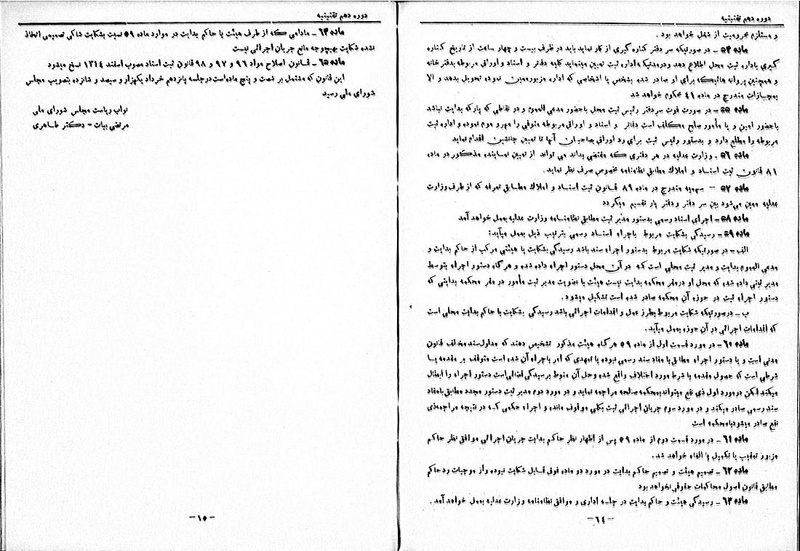 دوره دهم تقنینیه
و مستلزم محرومیت از شغل خواهد بود.
ماده ۵۴ – در صورتیکه سر دفتر کناره گیری از کار نماید باید در ظرف بیست و چهار ساعت از تاریخ کناره
گیری باداره ثبت محل اطلاع دهد و درمدتیکه اداره ثبت تعیین مینماید کلیه دفتر و اسناد و اوراق مربوطه بدفترخانه
و همچنین پروانه هائیکه برای او صادر شده بشخص یا اشخاصی که اداره مزبور معین نموده تحویل بدهد و الا
بمجازات مندرج در ماده ۴۱ محکوم خواهد شد
ماده ۵۵ – در صورت فوت سردفتر رئیس ثبت محل باحضور مدعی العموم و در نقاطی که پارکه بدایت نباشد
باحضور امین و یا مأمور صلح مکلف است دفاتر و اسناد و اوراق مربوطه متوفی را مهر و موم نموده و اداره ثبت
مربوطه را مطلع دارد و بدستور رئیس ثبت برای رد اوراق صاحبان آنها تا تعیین جانشین اقدام نماید
ماده ۵۶ – وزارت عدلیه در هر دفتری که مقتضی بداند می تواند از تعیین نماینده مذکور در ماده
۸۱ قانون ثبت اسناد و املاک مطابق نظامنامه مخصوص صرف نظر نماید.
ماده ۵۷ – سهمیه مندرج در ماده ۸۹ قانون ثبت اسناد و املاک مطابق تعرفه که از طرف وزارت
عدلیه معین می‌شود بین سر دفتر و دفتر یار تقسیم میگردد
ماده ۵۸ – اجرای اسناد رسمی بدستور مدیر ثبت مطابق نظامنامه وزارت عدلیه بعمل خواهد آمد
ماده ۵۹ – رسیدگی بشکایت مربوط باجراء اسناد رسمی بترتیب ذیل بعمل میآید:
الف – در صورتیکه شکایت مربوط بدستور اجراء سند باشد رسیدگی بشکایت با هیئتی مرکب از حاکم بدایت و
مدعی العموم بدایت و مدیر ثبت محلی است که در آن محل دستور اجراء داده شده و هرگاه دستور اجراء توسط
مدیر ثبتی داده شده که محل او در مقر محکمه بدایت نیست هیئت با عضویت مدیر ثبت مأمور در مقر محکمه بدایتی که
دستور اجراء ثبت در حوزه آن محکمه صادر شده است تشکیل میشود.
ب – درصورتیکه شکایت مربوط بطرز عمل و اقدامات اجرائی باشد رسیدگی بشکایت با حاکم بدایت محلی است
که اقدامات اجرائی در آن حوزه بعمل میآید.
ماده ۶۰ – در مورد قسمت اول از ماده ۵۹ هرگاه هیئت مذکور تشخیص دهند که مدلول سند مخالف قانون
مدنی است و یا دستور اجراء مطابق با مفاد سند رسمی نبوده یا تعهدی که امر باجراء آن شده است متوقف بر مقدمه یا
شرطی است که حصول مقدمه یا شرط مورد اختلاف واقع شده وحل آن منوط برسیدگی قضائی است دستور اجراء را ابطال
میکند لکن در مورد اول ذی نفع میتواند بمحکمه صالحه مراجعه نماید و در مورد دوم مدیر ثبت دستور مجدد مطابق بامفاد
سند رسمی صادر میکند و در مورد سوم جریان اجرائی ثبت بکلی موقوف مانده و اجراء حکمی که در نتیجه مراجعه ذی
نفع صادر میشود با محکمه است
ماده ۶۱ – در مورد قسمت دوم از ماده ۵۹ پس از اظهار نظر حاکم بدایت جریان اجرائی موافق نظر حاکم
مزبور تعقیب یا تکمیل یا الغاء خواهد شد.
ماده ۶۲ – تصمیم هیئت و تصمیم حاکم بدایت در مورد دو ماده فوق قابل شکایت نبوده و از موجبات رد حاکم
مطابق قانون اصول محاکمات حقوقی نخواهد بود
ماده ۶۳ – رسیدگی هیئت و حاکم بدایت در جلسه اداری و موافق نظامنامه وزارت عدلیه بعمل خواهد آمد.
– ۱۴ –
دوره دهم تقنینیه
ماده ۶۴ – مادامی که از طرف هیئت یا حاکم بدایت در موارد ماده ۵۹ نسبت بشکایت شاکی تصمیمی اتخاذ
نشده شکایت بهیچوجه مانع جریان اجرائی نیست
ماده ۶۵ – قانون اصلاح مواد ۹۶ و ۹۷ و ۹۸ قانون ثبت اسناد مصوب اسفند ۱۳۱۴ نسخ میشود
این قانون که مشتمل بر شصت و پنج ماده است در جلسه پانزدهم خرداد یکهزار و سیصد و شانزده بتصویب مجلس
شورای ملی رسید
نواب ریاست مجلس شورای ملی
مرتضی بیات – دکتر طاهری
– ۱۵ –